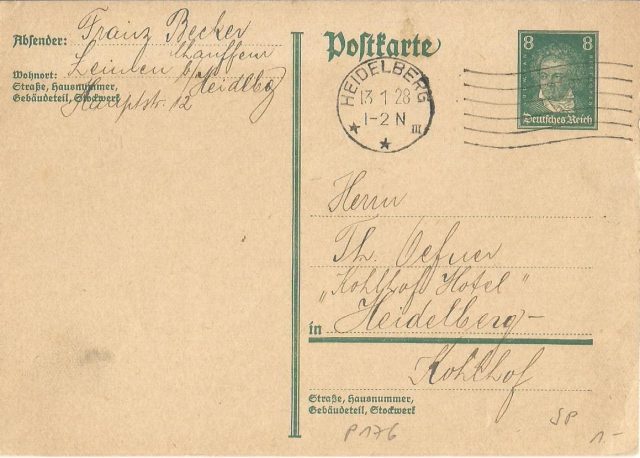 Absender: Franz Becker
Chauffeur
Wohnort: Leimen b/ Heidelbg
Straße, Hausnummer,
Gebäudeteil, Stockwerk Hauptstr. 12
Postkarte
HEIDELBERG
13 1 28
1-2 N
III
8 8
Deutsches Reich
Herrn
Th. Oefner
"Kohlhof Hotel"
in Heidelberg-
Kohlhof
Straße, Hausnummer,
Gebäudeteil, Stockwerk
P176
SP
1.-